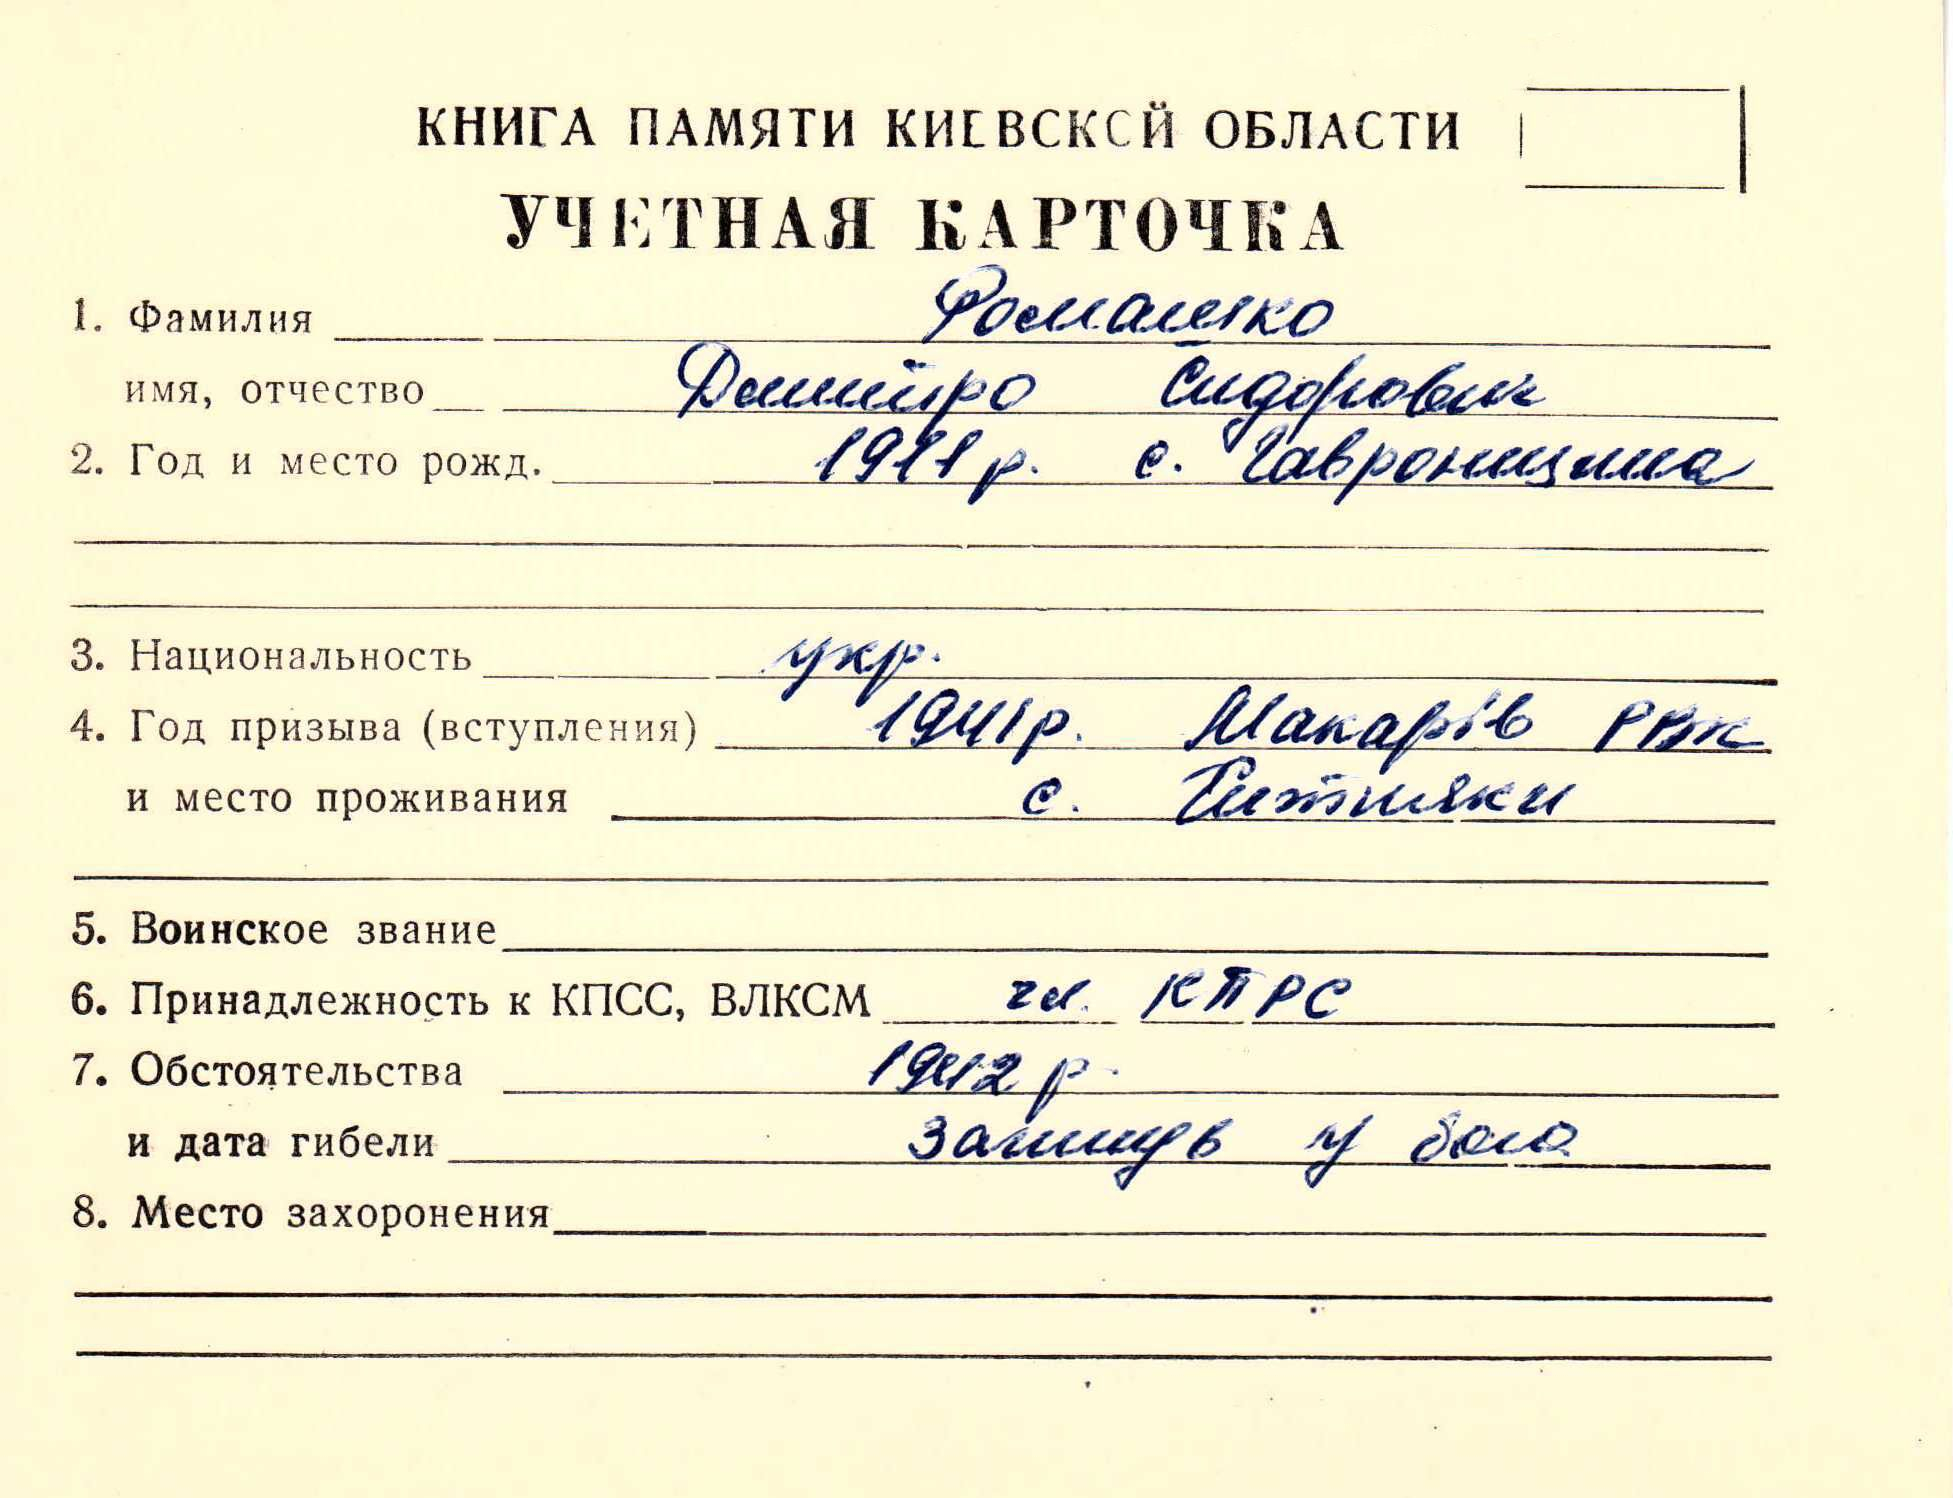 КНИГА ПАМЯТИ КИЕВСКОЙ ОБЛАСТИ
УЧЕТНАЯ КАРТОЧКА
1. Фамилия Романенко
имя, отчество Дмитро Сидорович
2. Год и место рожд. 1911 р. с. Гавронщина
3. Национальность укр.
4. Год призыва (вступления) 1941 р. Макарів РВК
и место проживания с.
5. Воинское звание
6. Принадлежность к КПСС, ВЛКСМ чл. КПРС
7. Обстоятельства 1942 р.
и дата гибели загинув у бою
8. Место захоронения